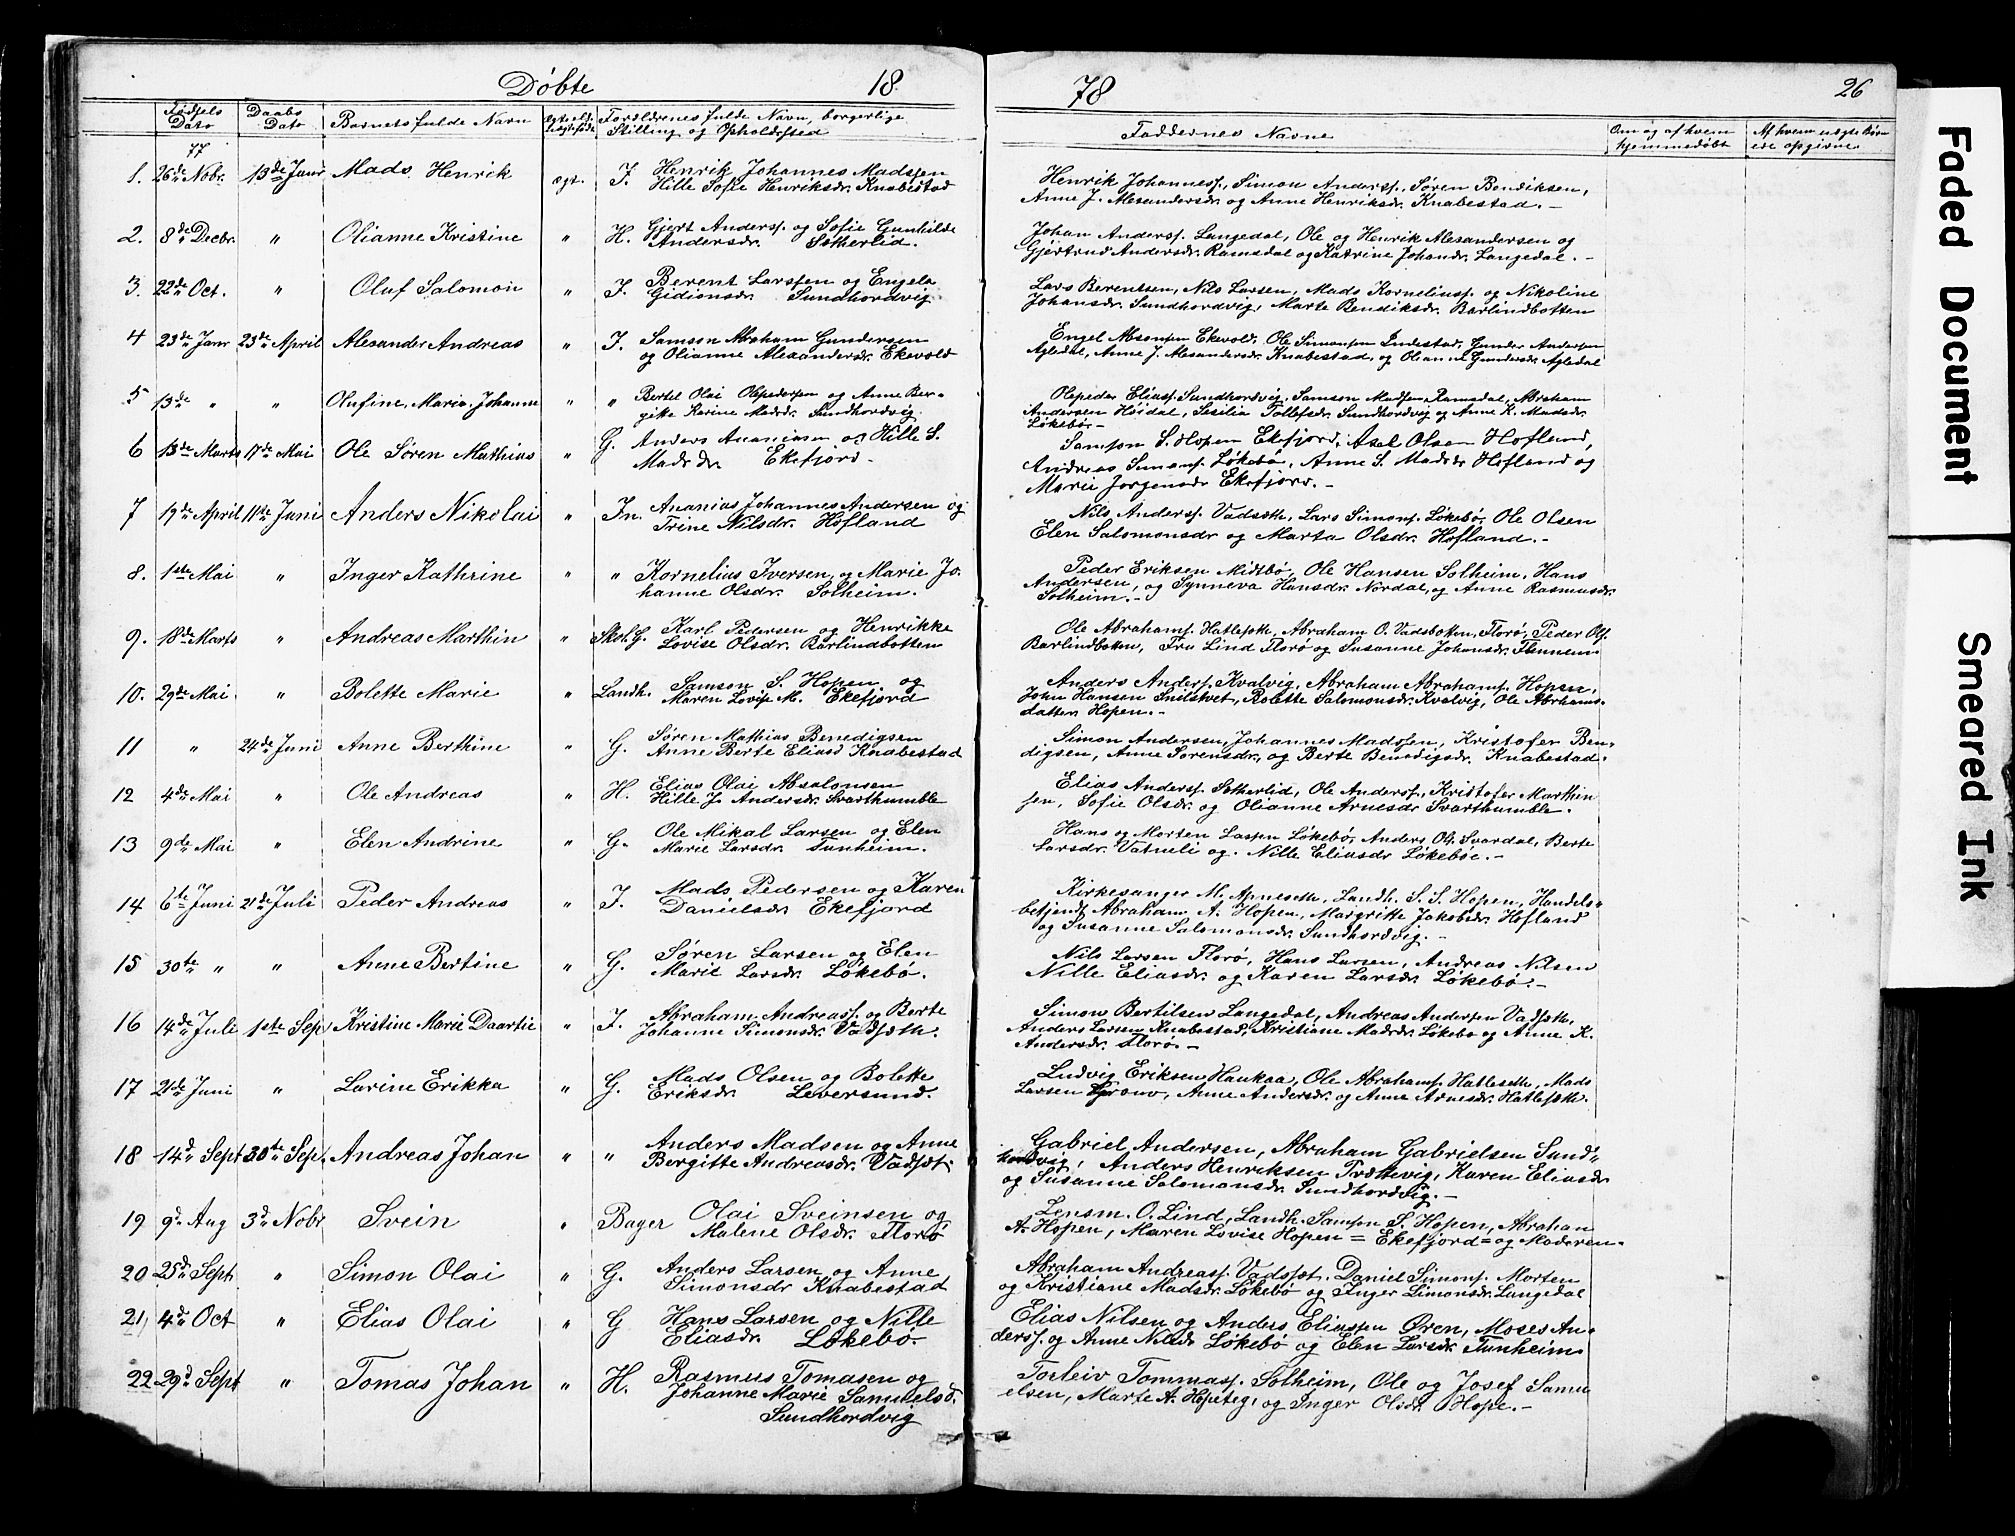 Døbte 18 78 26
Fødsels Dato
Daabs Dato
Barnets fulde Navn
Forældrenes fulde Navn, borgerlige Stilling og Opholdssted
Faddernes Navne
Om og af hvem hjemmedøbt
77
1. 26de Nobr. 13de Janr Mads Henrik ægt. I. Henrik Johannes Madssen
Hille Sofie Henriksdr. Knabestad
Henrik Johanness., Simon Anderss., Søren Bendiksen,
Anne J. Alexandersdr og Anne Henriksdr. Knabestad. -
2. 8de Decbr. " Olianne Kristine " H. Gjert Anderss. og Sofie Gunhilde
Andersdr. Sætherlid.
Johan Anderss. Langedal, Ole og Henrik Alexandersen og
Gjertrud Andersdr. Ramsdal og Katrine Johansdr. Langedal. -
3. 22de Oct. " Oluf Salomon " I. Berent Larssen og Engela
Gidionsdr. Sundhordvig
Lars Berentsen, Nils Larsen, Mads Korneliuss. og Nikoline
Johansdr. Sundhordvig, Marte Bendiksdr. Barlindbotten
4 23de Janr 23de April Alexander Andreas " I. Samson Abraham Gundersen
og Olianne Alexandersdr. Ekevold
Engel Absonsen Ekevold, Ole Simonsen Indestad, Gunder Andersen
Agledal, Anne J. Alexandersdr. Knabestad, og Olianne Gundersdr. Agledal
5 13de " " Olufine Marie Johanne " " Bertel Olai Olepedersen og Anne Ber-
gitte Karine Madsdr. Sundhordvig.
Olepeder Eliass. Sundhordvig, Samson Madsen Ramsdal, Abraham
Andersen Høidal, Sesilia Tollefsdr. Sundhordvig og Anne K. Madsdr.
Løkebø. -
6 13de Marts 17de Mai Ole Søren Mathias " G. Anders Ananiasen og Hille S.
Madsdr Ekefjord.
Samson S. Hopen Ekefjord, Axel Olsen Hofland,
Andreas Simons. Løkebø, Anne S. Madsdr Hofland og
Marie Jørgensdr Ekefjord. -
7 19de April 11de Juni Anders Nikolai " In. Ananias Johannes Andersen og
Trine Nilsdr. Hofland
Nils Anderss. Vadsæth, Lars Simons. Løkebø, Ole Olsen
Elen Salomonsdr og Marta Olsdr. Hofland. -
8. 1ste Mai " Inger Kathrine " " Kornelius Iversen og Marie Jo-
hanne Olsdr. Solheim.
Peder Eriksen Midtbø, Ole Hansen Solheim, Hans
Andersen, og Synneva Hansdr. Nordal, og Anne Rasmusdr.
Solheim. -
9. 18de Marts " Andreas Marthin " Skol.G. Karl Pedersen og Henrikke
Lovise Olsdr. Barlindbotten
Ole Abrahams. Hatlesæth, Abraham O. Vadsbotten, Florø, Peder Ols.
Barlindbotten, Fru Lind Florø og Susanne Johansdr.
10. 29de Mai " Bolette Marie " Landh. Samson S. Hopen og
Maren Lovise M. Ekefjord
Anders Anders. Kvalvig, Abraham Abrahams. Hopen,
John Hansen Snilstvet, Bolette Salomonsdr. Kvalvig, Ole Abrahams-
datter Hopen. -
11 " 24de Juni Anne Berthine " G. Søren Mathias Benedigsen
Anne Berte Eliasd Knabestad
Simon Andersen, Johannes Madssen, Kristofer Ben-
digsen, Anne Sørensdr. og Berte Benedigsdr. Knabestad.
12 4de Mai " Ole Andreas " H. Elias Olai Absalonsen
Hille J. Andersdr. Svarthumble
Elias Anderss. Sætherlid, Ole Anderss., Kristofer Marthin
sen, Sofie Olsdr. og Olianne Arnesdr Svarthumble.
13 9de Mai " Elen Andrine " G. Ole Mikal Larsen og Elen
Marie Larsdr. Tunheim.
Hans og Morten Lassen Løkebø, Anders Ols. Svardal, Berte
Larsdr. Vatneli og Nille Eliasdr Løkebøe. -
14 6te Juni 21de Juli Peder Andreas " I. Mads Pedersen og Karen
Danielsdr. Ekefjord
Kirkesanger M. Apneseth, Landh. S. S. Hopen, Handels-
betjent Abraham A. Hopen, Margritte Jakobsdr. Hofland
og Susanne Salomonsdr. Sundhordvig. -
15 30te " " Anne Bertine " G. Søren Larsen og Elen
Marie Larsdr. Løkebø.
Nils Larsen Florø, Hans Larsen, Andreas Nilsen
Nille Eliasdr. og Karen Larsdr. Løkebø. -
16 14de Juli 1ste Sep Kristine Marie Daartie " I. Abraham Andreass. og Berte
Johanne Simonsdr. Vadsæth.
Simon Bertilsen Langedal, Andreas Andersen Vadsæth,
Anders Larsen Knabestad, Kristiane Madsdr. Løkebø og Anne K.
Andersdr. Florø. -
17 21de Juni " Larine Erikka " G. Mads Olsen og Bolette
Eriksdr. Leversund.
Ludvig Eriksen Haukaa, Ole Abrahams. Hatlesæth, Mads
Larsen, Anne Andersdr. og Anne Arnesdr. Hatlesæth.
18 14d Sept 30te Sep. Andreas Johan " " Anders Madsen og Anne
Bergitte Andreasdr. Vadsæt.
Gabriel Andersen, Abraham Gabrielsen Sund-
hordvig, Anders Henriksen Trættevig, Karen Eliasdr
og Susanne Salomonsdr. Sundhordvig. -
19 9d Aug 3d Nobr Svein " Bager Olai Sveinsen og
Malene Olsdr. Florø
Lensm. O. Lind, Landh. Samson S. Hopen, Abraham
A. Hopen, Maren Lovise Hopen = Ekefjord = og Moderen.
20 25d Sept " Simon Olai " G. Anders Larsen og Anne
Simonsdr Knabestad
Abraham Andreass. Vadsæt, Daniel Simons. Morten
og Kristiane Madsdr. Løkebø og Inger Simonsdr. Langedal
21 4d Oct " Elias Olai " G Hans Larsen og Nille
Eliasdr. Løkebø.
Elias Nilsen og Anders Eliassen Øren, Moses An-
derss. og Anne Nilsdr Løkebø og Elen Larsdr Tunheim
22 29d Sept " Tomas Johan " H. Rasmus Tomasen og
Johanne Marie Samuelsd.
Sundhordvig
Torleiv Tommass. Solheim, Ole og Josef Samu
elsen, Marte A. Hopeteg, og Inger Olsdr Hope. -
Faded Document
Smeared Ink